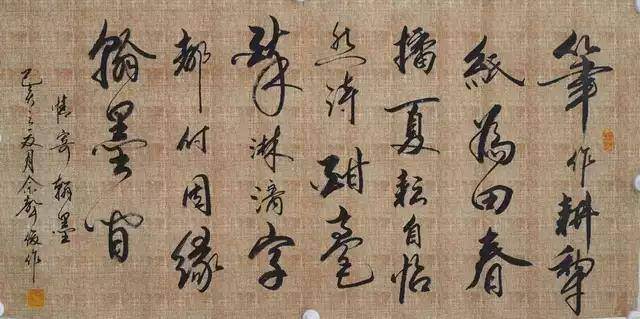 筆作耕犁
紙為田春
播夏耘自怡
然詩酣毫
醉淋漓字
都付因緣
翰墨間
情寄翰墨
己亥之夏月余俊作